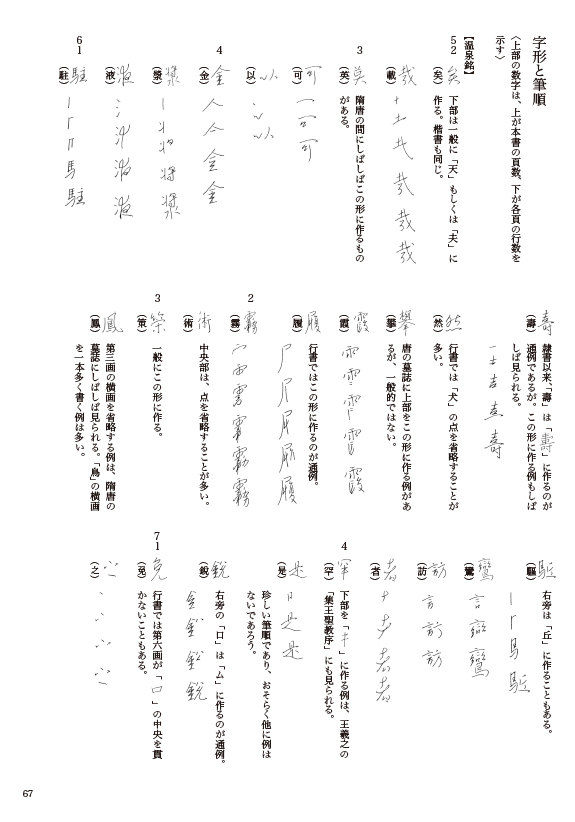 字形と筆順
〈上部の数字は、上が本書の頁数、下が各頁の行数を
示す〉
【温泉銘】
5 2 （矣）
下部は一般に「天」もしくは「夫」に
作る。楷書も同じ。
（載）
3 （英）
隋唐の間にしばしばこの形に作るもの
がある。
（可）
（以）
4 （金）
（漿）
（液）
6 1 （駐）
（壽）
隷書以来、「壽」は「壽」に作るのが
通例であるが、この形に作る例もしば
しば見られる。
（然）
行書では「犬」の点を省略することが
多い。
（擧）
唐の墓誌に上部をこの形に作る例があ
るが、一般的ではない。
（霞）
（履）
行書ではこの形に作るのが通例。
2 （霧）
（術）
中央部は、点を省略することが多い。
3 （策）
一般にこの形に作る。
（鳳）
第三画の横画を省略する例は、隋唐の
墓誌にしばしば見られる。「鳥」の横画
を一本多く書く例は多い。
（驅）
右旁は「丘」に作ることもある。
（鸞）
（訪）
（者）
4 （罕）
下部を「」に作る例は、王羲之の
「集王聖教序」にも見られる。
（是）
珍しい筆順であり、おそらく他に例は
ないであろう。
（鋭）
右旁の「口」は「ム」に作るのが通例。
7 1 （免）
行書では第六画が「口」の中央を貫
かないこともある。
（之）
67